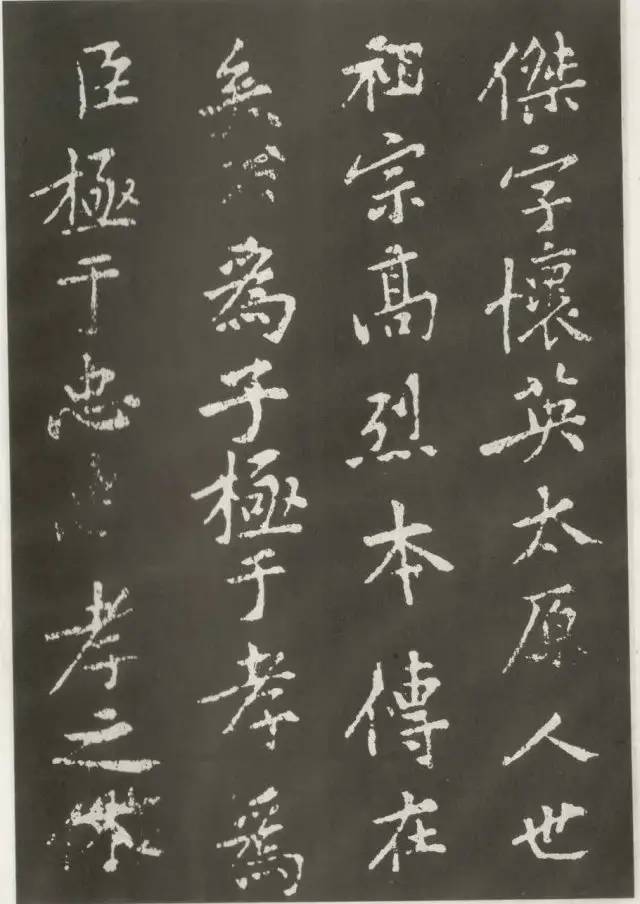 傑字懷英太原人世
祖宗髙烈本傳在
矣公爲子極于孝爲
臣極于忠忠孝之